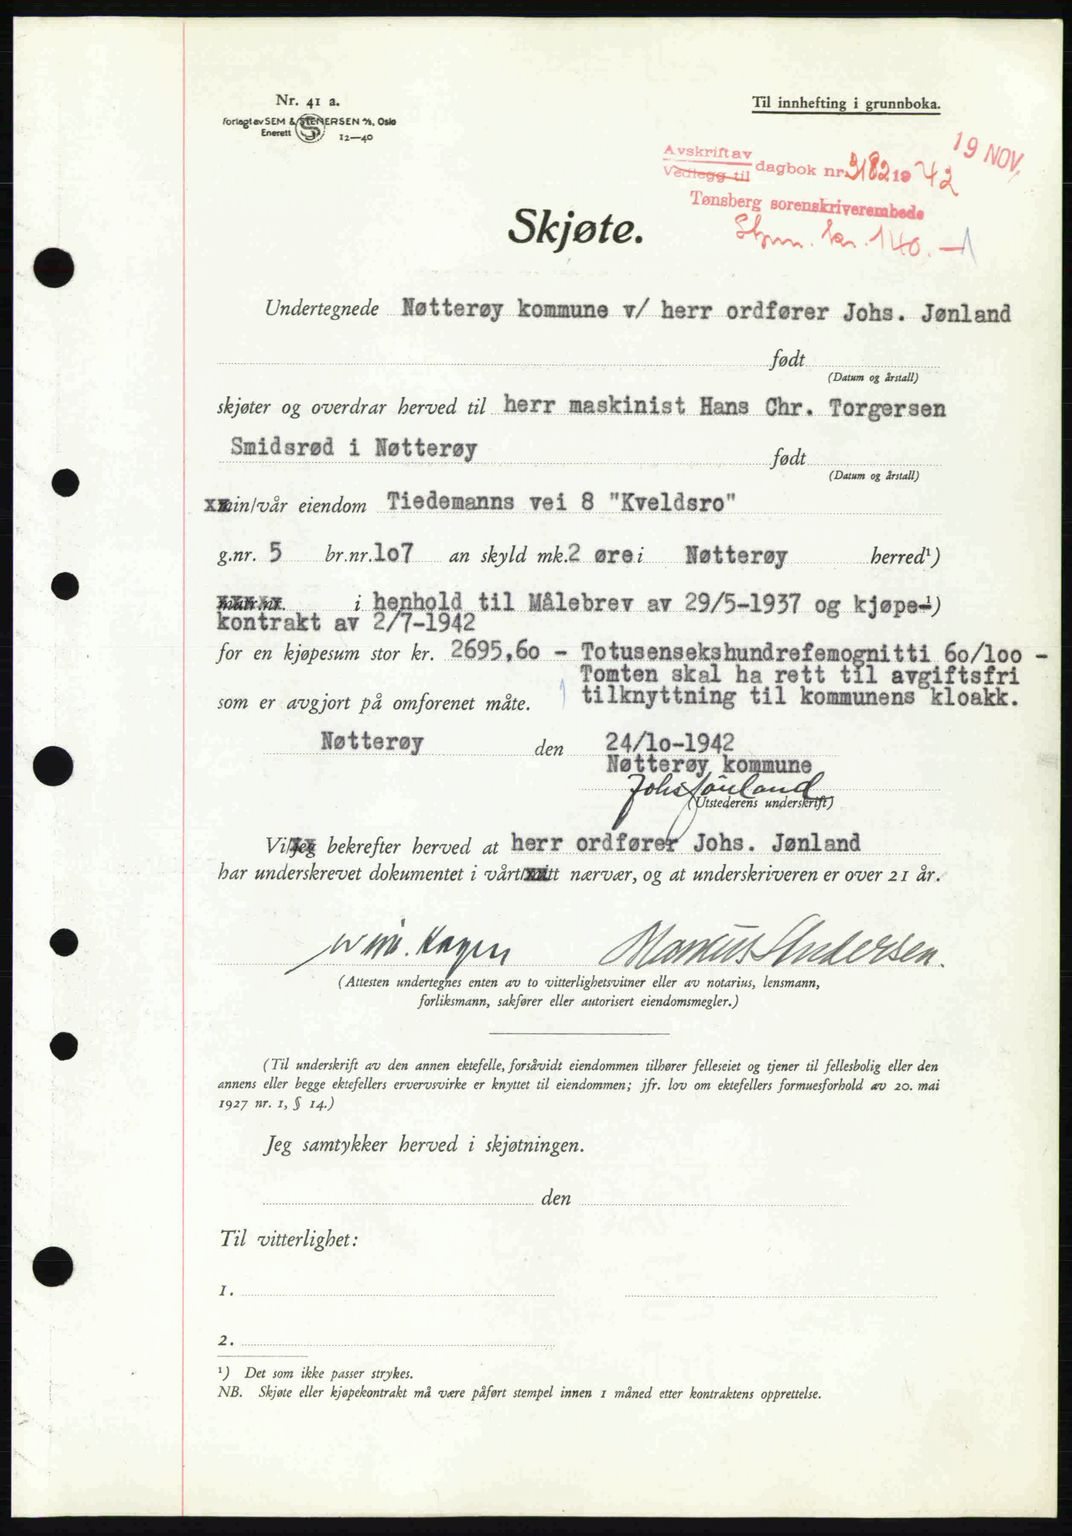 Nr. 41 a.
Forlagt av SEM & STENERSEN A/S, Oslo
Enerett
12—40
Til innhefting i grunnboka.
19 NOV.
Avskrift av
Vedlegg til dagbok nr. 3182 1942
Tønsberg sorenskriverembede
Stpm. kr. 140.—
Skjøte.
Undertegnede Nøtterøy kommune v/ herr ordfører Johs. Jønland
født
(Datum og årstall)
skjøter og overdrar herved til herr maskinist Hans Chr. Torgersen
Smidsrød i Nøtterøy født
(Datum og årstall)
min/vår eiendom Tiedemanns vei 8 "Kveldsro"
g.nr. 5 br.nr. 1o7 an skyld mk. 2 øre i Nøtterøy herred¹)
matr.nr. i henhold til Målebrev av 29/5-1937 og kjøpe-¹)
kontrakt av 2/7-1942
for en kjøpesum stor kr. 2695,6o - Totusensekshundrefemognitti 6o/1oo -
Tomten skal ha rett til avgiftsfri
som er avgjort på omforenet måte. tilknyttning til kommunens kloakk.
Nøtterøy den 24/1o-1942
Nøtterøy kommune
Johs Jönland
(Utstederens underskrift)
Vi/jeg bekrefter herved at herr ordfører Johs. Jønland
har underskrevet dokumentet i vårt/mitt nærvær, og at underskriveren er over 21 år.
Wilh. Hagen Marcus Andersen.
(Attesten undertegnes enten av to vitterlighetsvitner eller av notarius, lensmann,
forliksmann, sakfører eller autorisert eiendomsmegler.)
(Til underskrift av den annen ektefelle, forsåvidt eiendommen tilhører felleseiet og tjener til fellesbolig eller den
annens eller begge ektefellers ervervsvirke er knyttet til eiendommen; jfr. lov om ektefellers formuesforhold av 20. mai
1927 nr. 1, § 14.)
Jeg samtykker herved i skjøtningen.
den
Til vitterlighet:
1.
2.
¹) Det som ikke passer strykes.
NB. Skjøte eller kjøpekontrakt må være påført stempel innen 1 måned etter kontraktens opprettelse.